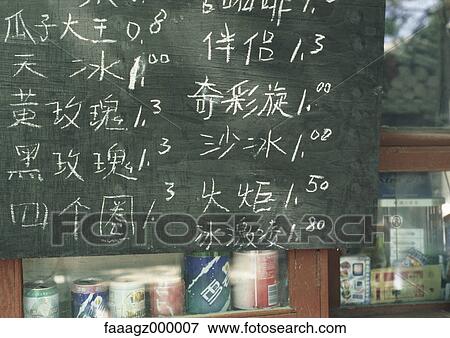 瓜子大王 0.8
天冰 1.00
黃玫瑰 1.3
黑玫瑰 1.3
四个圈 1.3
咖啡 1.
伴侣 1.3
奇彩旋 1.00
沙冰 1.00
火炬 1.50
冰 1.80
FOTOSEARCH
faaagz000007 www.fotosearch.com